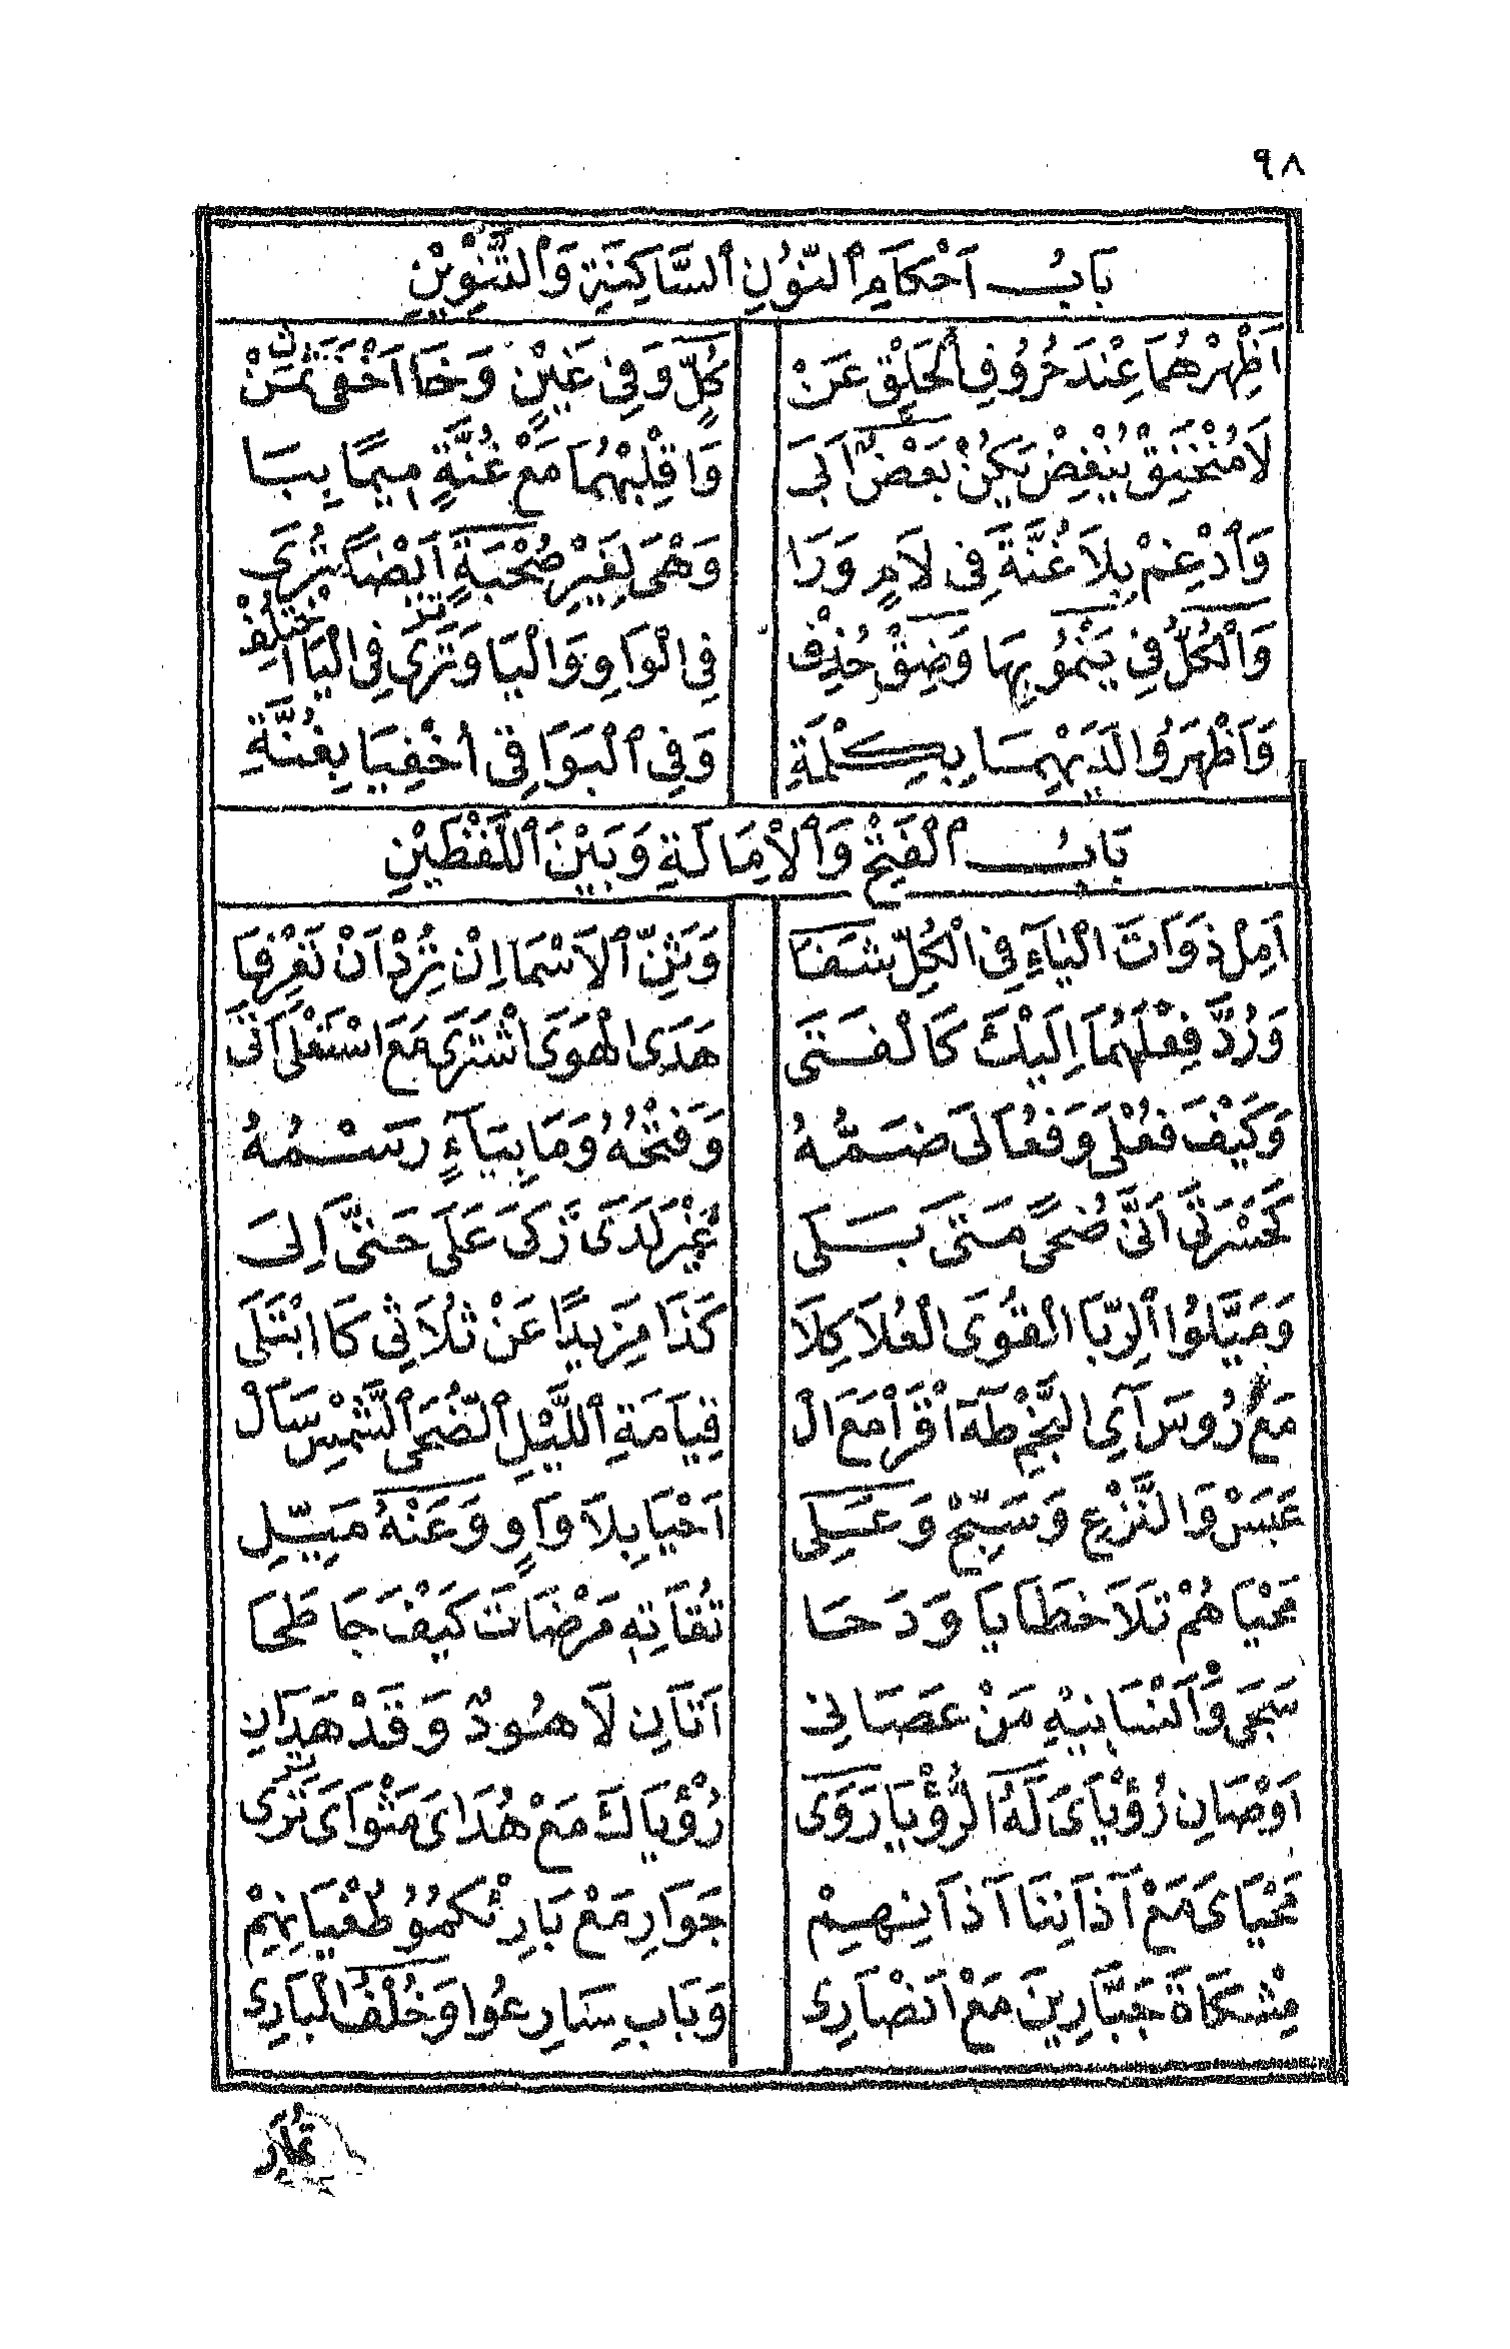 ٩٨
بَابُ اَحْكَامِ ٱلنُّوْنِ ٱلسَّاكِنَةِ وَٱلتَّنْوِيْنِ
اَظْهِرْهُمَا عِنْدَ حُرُوْفِ ٱلْحَلْقِ عَنْ كُلٍّ وَفِى غَيْنٍ وَخَا اَخْفَى ثَمَنْ
لَا مُنْخَنِقْ يُنْغِضْ يَكُنْ بَعْضٌ اَبَى وَاقْلِبْهُمَا مَعْ غُنَّةٍ مِيمًا بِبَا
وَٱدْغِمْ بِلَا غُنَّةَ فِى لَامٍ وَرَا وَهْىَ لِغَيْرِ صُحْبَةٍ اَيْضًا تُرَى
وَٱلْكُلُّ فِى يَنْمُو بِهَا وَضِقْ حُذِفْ فِى الْوَاوِ وَالْيَا وَتَرَى فِى الْيَا اخْتُلِفْ
وَاَظْهَرُوا لَدَيْهِمَا بِكِلْمَةِ وَفِى ٱلْبَوَاقِى اُخْفِيَا بِغُنَّةِ
بَابُ ٱلْفَتْحِ وَٱلْاِمَالَةِ وَبَيْنَ ٱللَّفْظَيْنِ
اَمِلْ ذَوَاتَ الْيَاءِ فِى الْكُلِّ شَفَا وَثَنِّ ٱلْاَسْمَا اِنْ تُرِدْ اَنْ تَعْرِفَهَا
وَرُدَّ فِعْلَهُمَا اِلَيْكَ كَالْفَتَى هُدَى الْهَوَى اشْتَرَى مَعَ اسْتَعْلَى اَتَى
وَكَيْفَ فَعْلَى وَفُعَالَى ضَمُّهُ وَفَتْحُهُ وَمَا بِيَاءٍ رَسْمُهُ
كَحَسْرَتَى اَنَّى ضُحًى مَتَى بَلَى غَيْرَ لَدَى زَكَى عَلَى حَتَّى اِلَى
وَمَيَّلُوا ٱلرِّبَا الْقُوَى الْعُلَا كِلَا كَذَا مَزِيدًا عَنْ ثُلَاثِى كَابْتَلَى
مَعْ رُوسَ آىِ النَّجْمِ طَهَ اقْرَأْ مَعَ الْ قِيَامَةِ ٱللَّيْلِ ٱلضُّحَى ٱلشَّمْسِ سَأَلْ
عَبَسْ وَالنَّزْعِ وَسَبِّحْ وَعَلِى اَحْيَا بِلَا وَاوٍ وَعَنْهُ مَيِّلِ
مَحْيَاهُمْ تَلَا خَطَايَا وَدَحَا تُقَاتِهِ مَرْضَاتَ كَيْفَ جَا طَحَا
سَجَى وَاَنْسَانِيْهِ مَنْ عَصَانِى اَتَانِ لَا هُودٌ وَقَدْ هَدَانِ
اَوْصَانِ رُؤْيَاىَ لَهُ الرُّؤْيَا رَوَى رُؤْيَاكَ مَعْ هُدَاىَ مَثْوَاىَ تَوَى
مَحْيَاىَ مَعْ اٰذَانِنَا اٰذَانِهِمْ جَوَارِ مَعْ بَارِئِكُمُو طُغْيَانِهِمْ
مِشْكَاةَ جَبَّارِينَ مَعْ اَنْصَارِى وَبَابِ سَارِعُوا وَخُلْفُ الْبَارِى